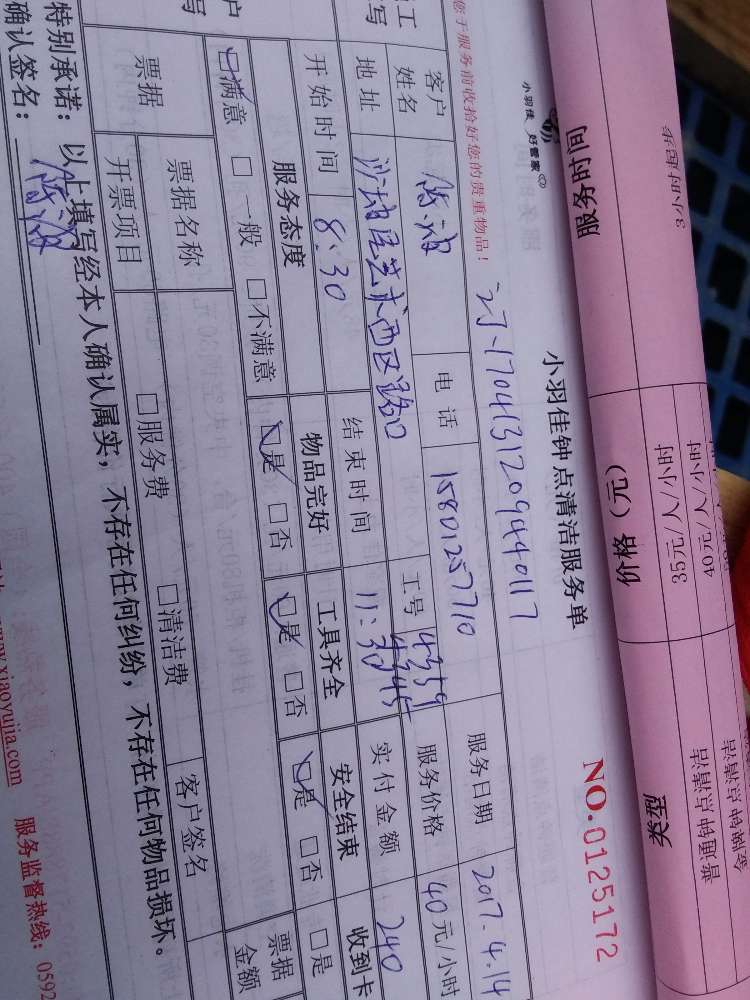 3小时起
服务时间
价格（元）
35元/人/小时
40元/人/小时
类型
普通钟点清洁
金牌钟点清洁
小羽佳 好管家
小羽佳钟点清洁服务单
NO.0125172
订.1704131209440117
您于服务前收拾好您的贵重物品！
客户姓名 电话 15801257710 服务日期 2017.4.14
地址 艺术西区路口 工号 4359 4345 服务价格 40元/小时
开始时间 8:30 结束时间 11:30 实付金额 240
服务态度 物品完好 工具齐全 安全结束 收到卡
☑满意 □一般 □不满意 ☑是 □否 ☑是 □否 ☑是 □否 □是
票据 票据名称 客户签名 票据金额
开票项目 □服务费 □清洁费
特别承诺：以上填写经本人确认属实，不存在任何纠纷，不存在任何物品损坏。
确认签名：
www.xiaoyujia.com 服务监督热线：0592